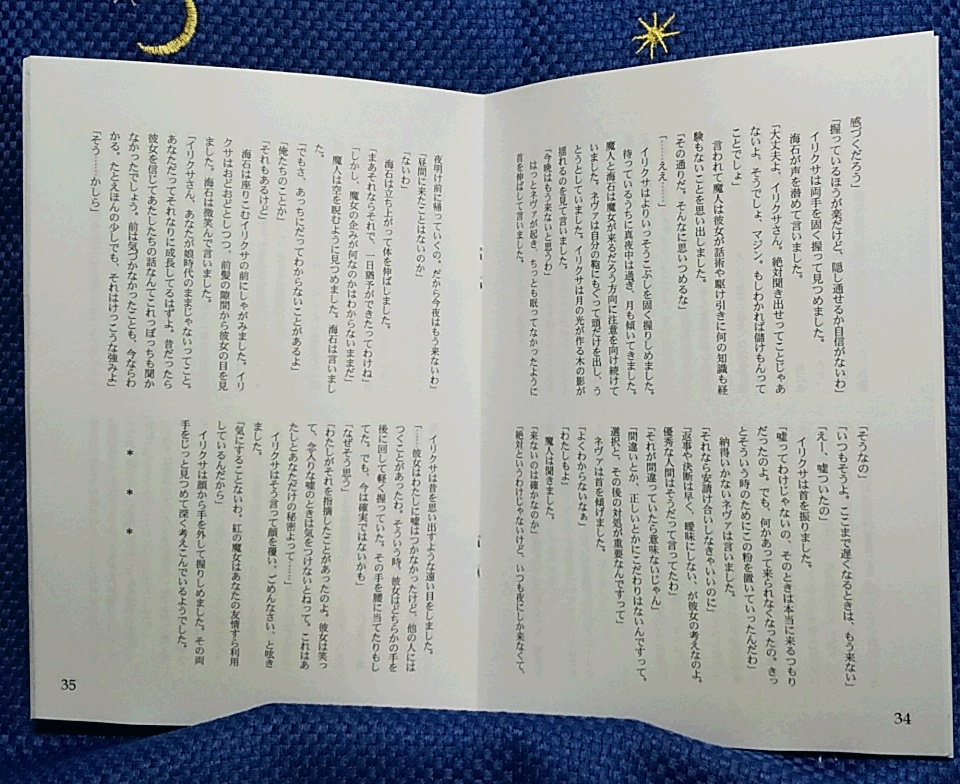 感づくだろう」
「握っているほうが楽だけど、隠し通せるか自信がないわ」
イリクサは両手を固く握って見つめました。
海石が声を潜めて言いました。
「大丈夫よ、イリクサさん。絶対聞き出せってことじゃあ
ないよ。そうでしょ、マジン。もしわかれば儲けもんって
ことでしょ」
言われて魔人は彼女が話術や駆け引きに何の知識も経
験もないことを思い出しました。
「その通りだ。そんなに思いつめるな」
「……ええ……」
イリクサはよりいっそうこぶしを固く握りしめました。
待っているうちに真夜中は過ぎ、月も傾いてきました。
魔人と海石は魔女が来るだろう方向に注意を向け続けて
いました。ネヴァは自分の鞄にもぐって頭だけを出し、う
とうとしていました。イリクサは月の光が作る木の影が
揺れるのを見て言いました。
「今晩はもう来ないと思うわ」
はっとネヴァが起き、ちっとも眠ってなかったように
首を伸ばして言いました。
「そうなの」
「いつもそうよ。ここまで遅くなるときは、もう来ない」
「えー、嘘ついたの」
イリクサは首を振りました。
「嘘ってわけじゃないの、そのときは本当に来るつもり
だったのよ。でも、何かあって来られなくなったの。きっ
とそういう時のためにこの粉を置いていったんだわ」
納得いかないネヴァは言いました。
「それなら安請け合いしなきゃいいのに」
「返事や決断は早く、曖昧にしない、が彼女の考えなのよ。
優秀な人間はそうだって言ってたわ」
「それが間違っていたら意味ないじゃん」
「間違いとか、正しいとかにこだわりはないんですって。
選択と、その後の対処が重要なんですって」
ネヴァは首を傾げました。
「よくわからないなぁ」
「わたしもよ」
魔人は聞きました。
「来ないのは確かなのか」
「絶対というわけじゃないけど、いつも夜にしか来なくて、
34
夜明け前に帰っていくの。だから今夜はもう来ないわ」
「昼間に来たことはないのか」
「ないわ」
海石は立ち上がって体を伸ばしました。
「まあそれならそれで、一日猶予ができたってわけね」
「しかし、魔女の企みが何なのかはわからないままだ」
魔人は空を睨むように見つめました。海石は言いまし
た。
「でもさ、あっちにだってわからないことがあるよ」
「俺たちのことか」
「それもあるけど」
海石は座りこむイリクサの前にしゃがみました。イリ
クサはおどおどとしつつ、前髪の隙間から彼女の目を見
ました。海石は微笑んで言いました。
「イリクサさん、あなたが娘時代のままじゃないってこと。
あなただってそれなりに成長してるはずよ。昔だったら
彼女を信じてあたしたちの話なんてこれっぽっちも聞か
なかったでしょう。前は気づかなかったことも、今ならわ
かる。たとえほんの少しでも、それはけっこうな強みよ」
「そう……かしら」
イリクサは昔を思い出すような遠い目をしました。
「……彼女はわたしに嘘はつかなかったけど、他の人には
つくことがあったわ。そういう時、彼女はどちらかの手を
後に回して軽く握っていた。その手を腰に当てたりもし
てた。でも、今は確実ではないかも」
「なぜそう思う」
「わたしがそれを指摘したことがあったのよ。彼女は笑っ
て、念入りな嘘のときは気をつけないとねって。これはあ
たしとあなただけの秘密よって……」
イリクサはそう言って顔を覆い、ごめんなさい、と呟き
ました。
「気にすることないわ。紅の魔女はあなたの友情すら利用
しているんだから」
イリクサは顔から手を外して握りしめました。その両
手をじっと見つめて深く考えこんでいるようでした。
* * *
35